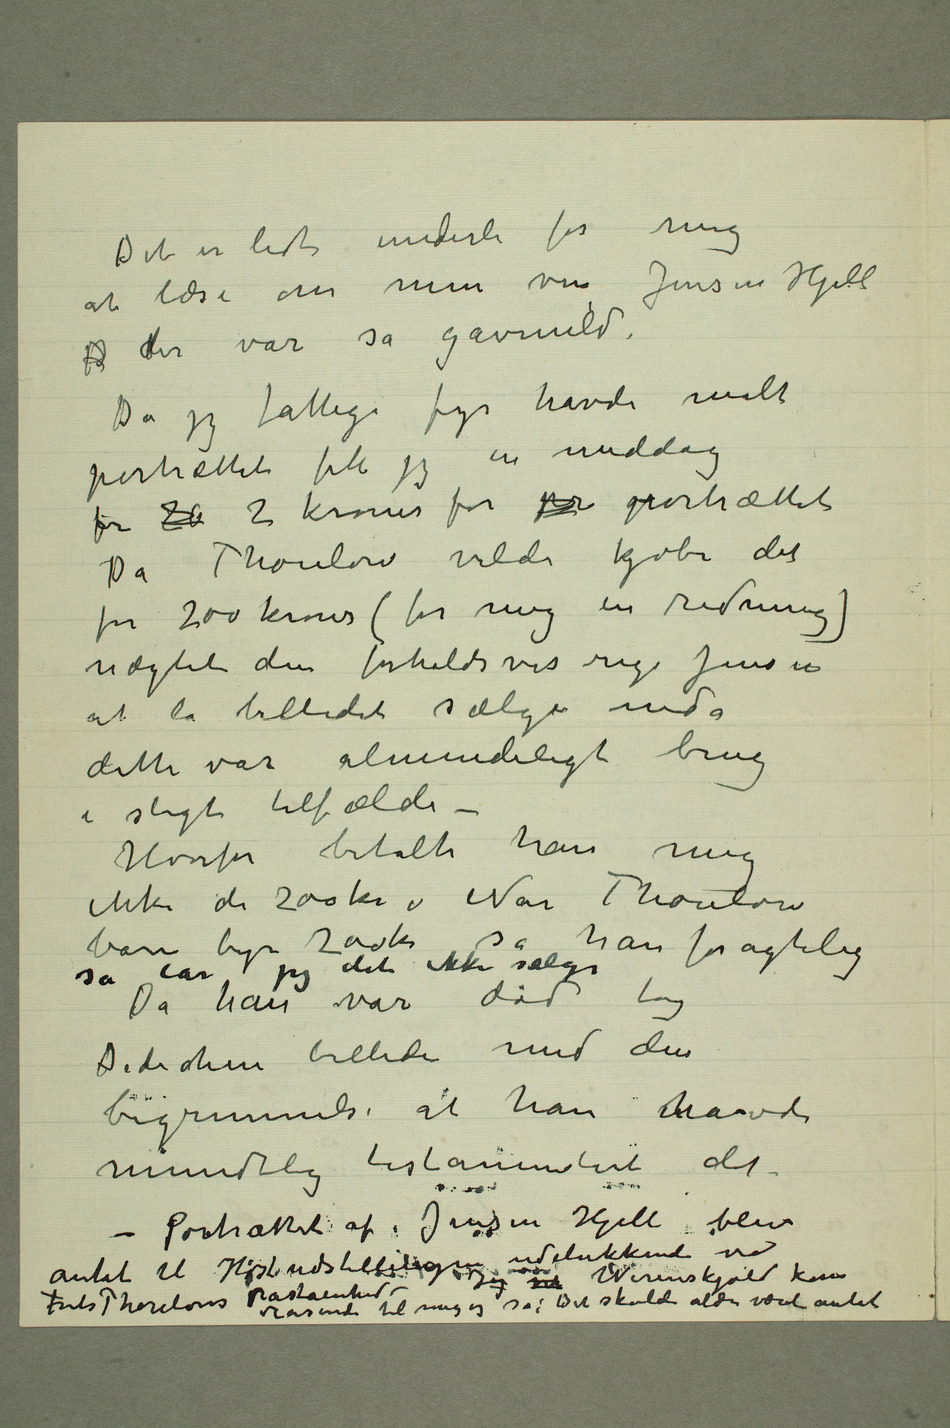 Det er lidt underli for mig
at læse om min ven Jensen Hjell
der var så gavmild.
Da jeg fattige fyr havde malt
portrættet fik jeg en middag
for 2 kroner for portrættet
Da Thoulow vilde kjøbe det
for 200 kroner (for mig en redning)
nægtet den forholdsvis rige Jensen
at la billedet sælge endda
dette var almindeligt brug
i sligt tilfælde –
Hvorfor betalte han mig
ikke de 200 kr. Når Thoulow
bare byr 200 kr så han foragtelig
så lar jeg det ikke sælge
Da han var død tog
Dedichen billedet med den
begrundelse at han havde
mundtlig testamenteret det –
– Portrættet af Jensen Hjell blev
antat til Høstudstillingen udelukkende ved
Frits Thorelows Påståenhed Werenskjold kom
rasende til mig og sa: Det skulde aldri været antat